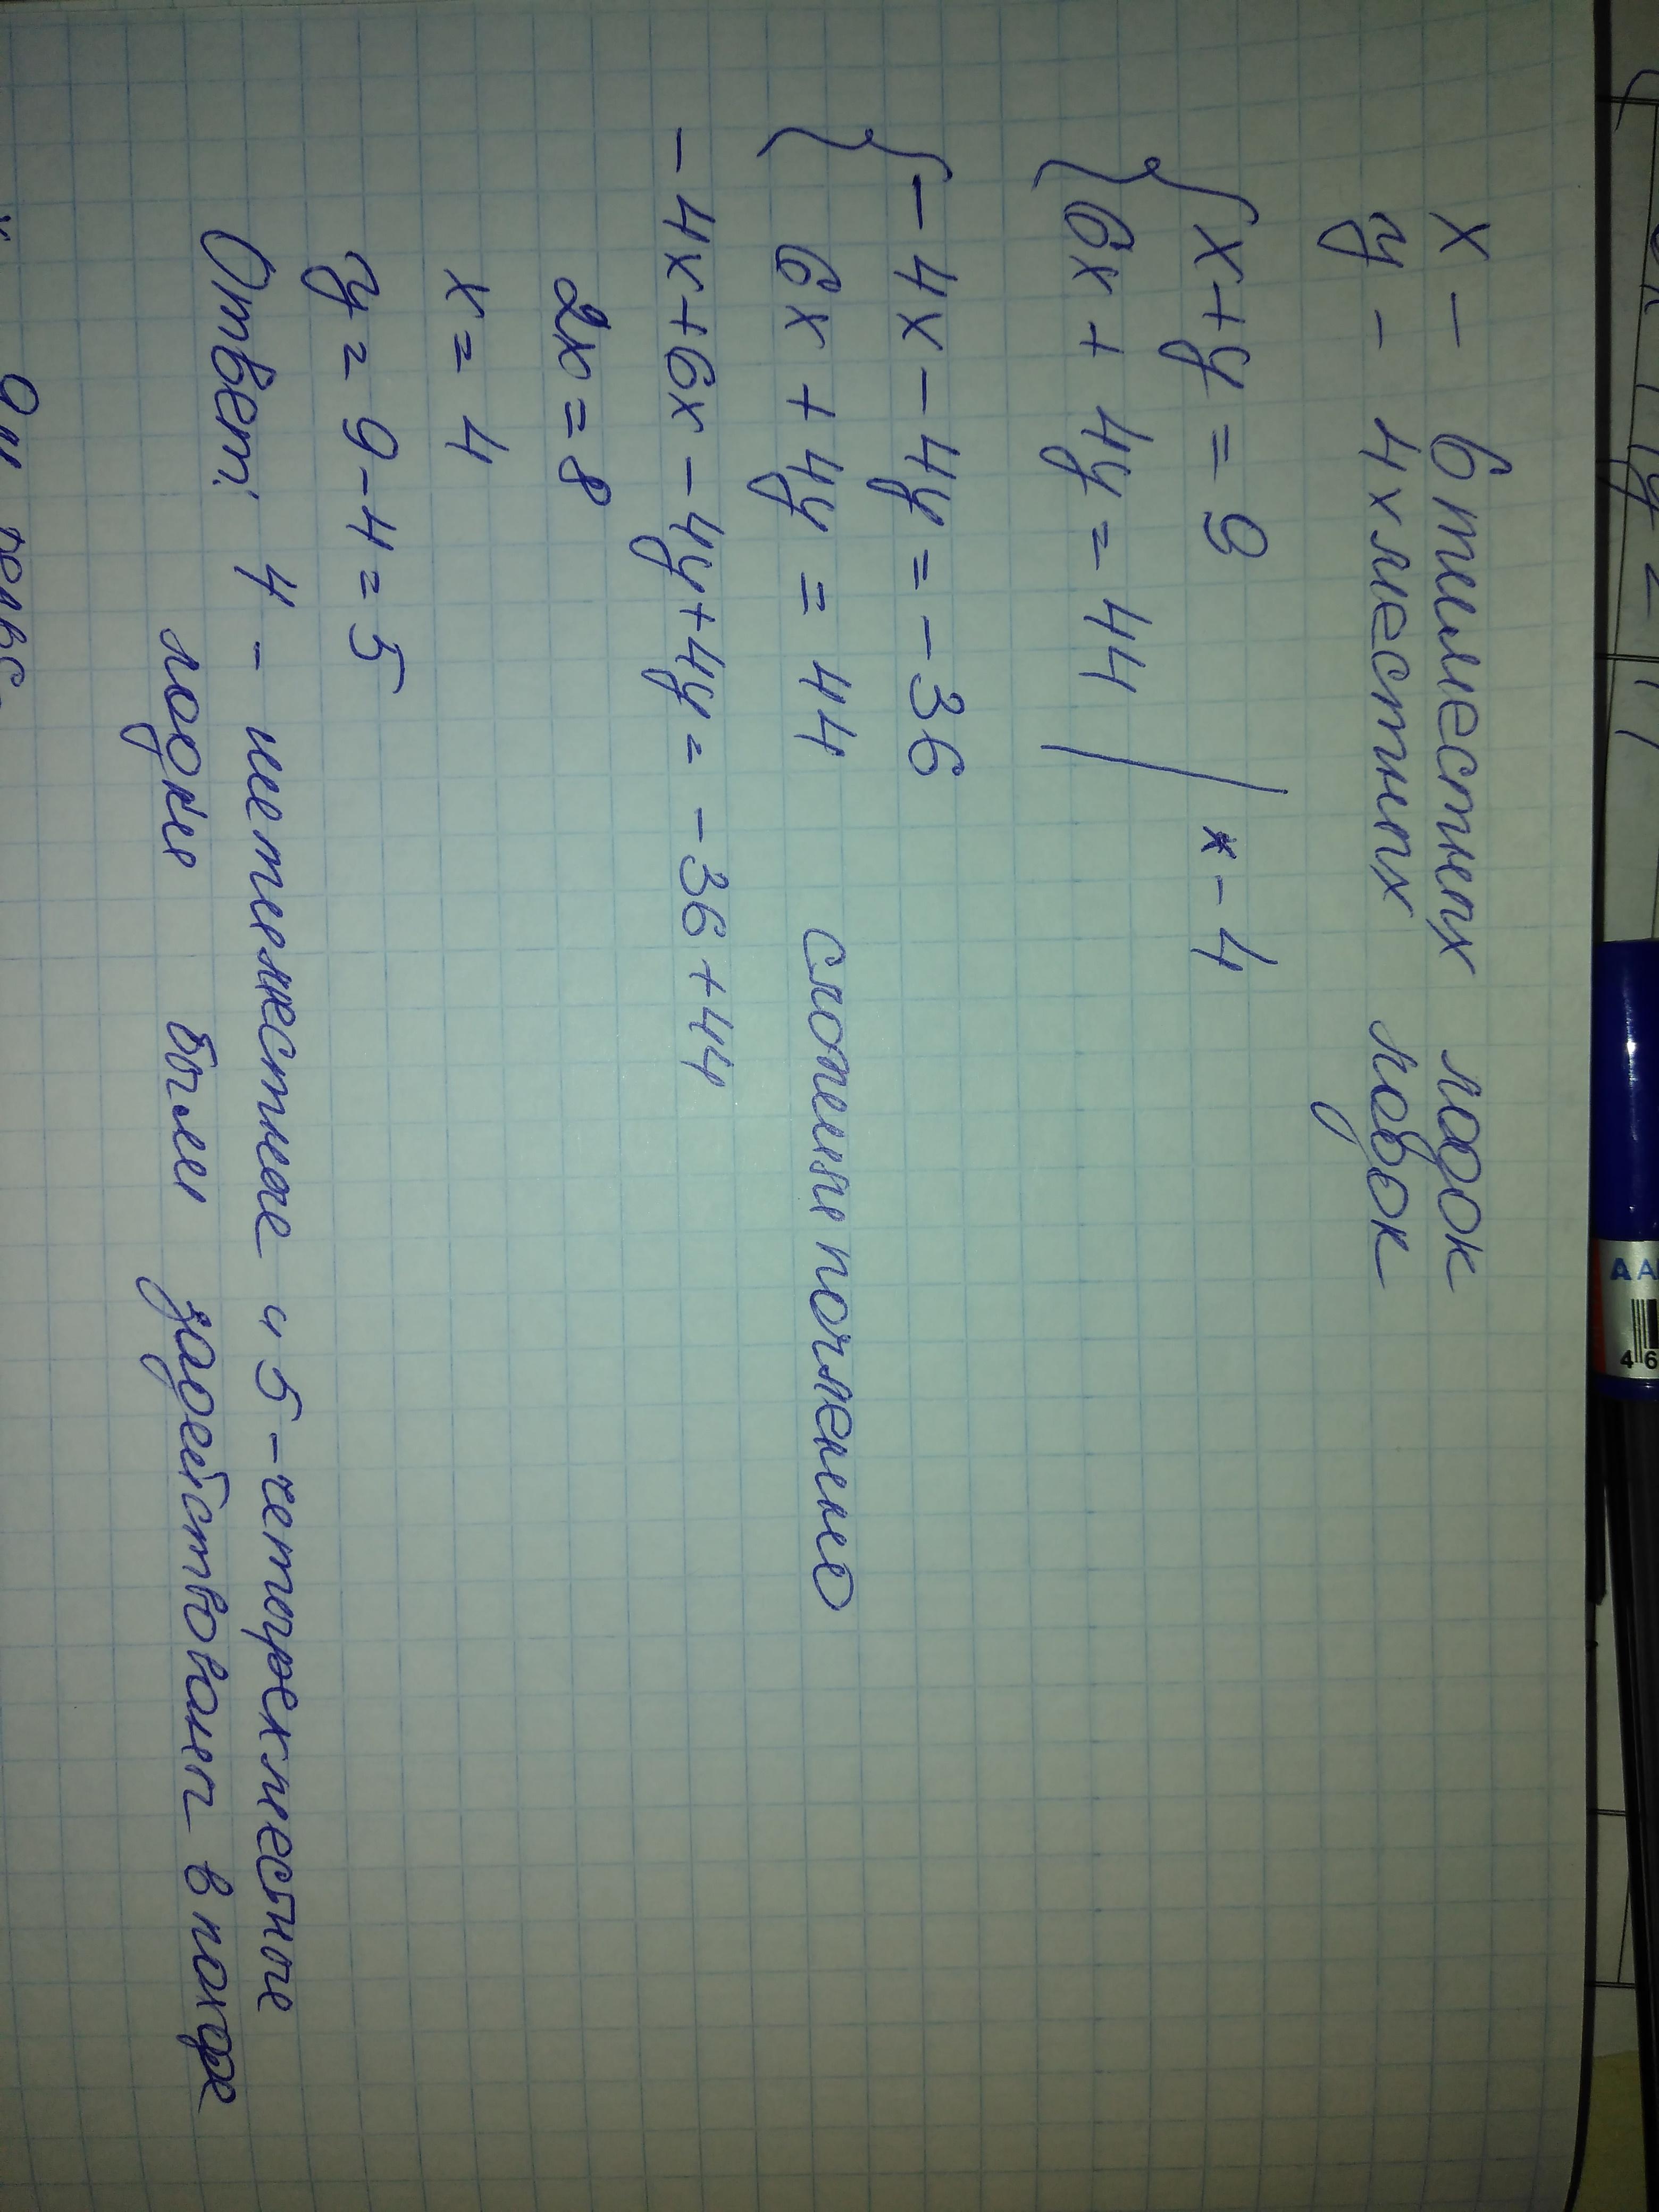 x - 6тиместных лодок
y - 4хместных лодок
x+y=9 | * -4
6x+4y=44
-4x-4y=-36
6x+4y=44 сложим почленно
-4x+6x-4y+4y=-36+44
2x=8
x=4
y=9-4=5
Ответ: 4 - шестиместные и 5 - четырехместные
лодки были задействованы в походе